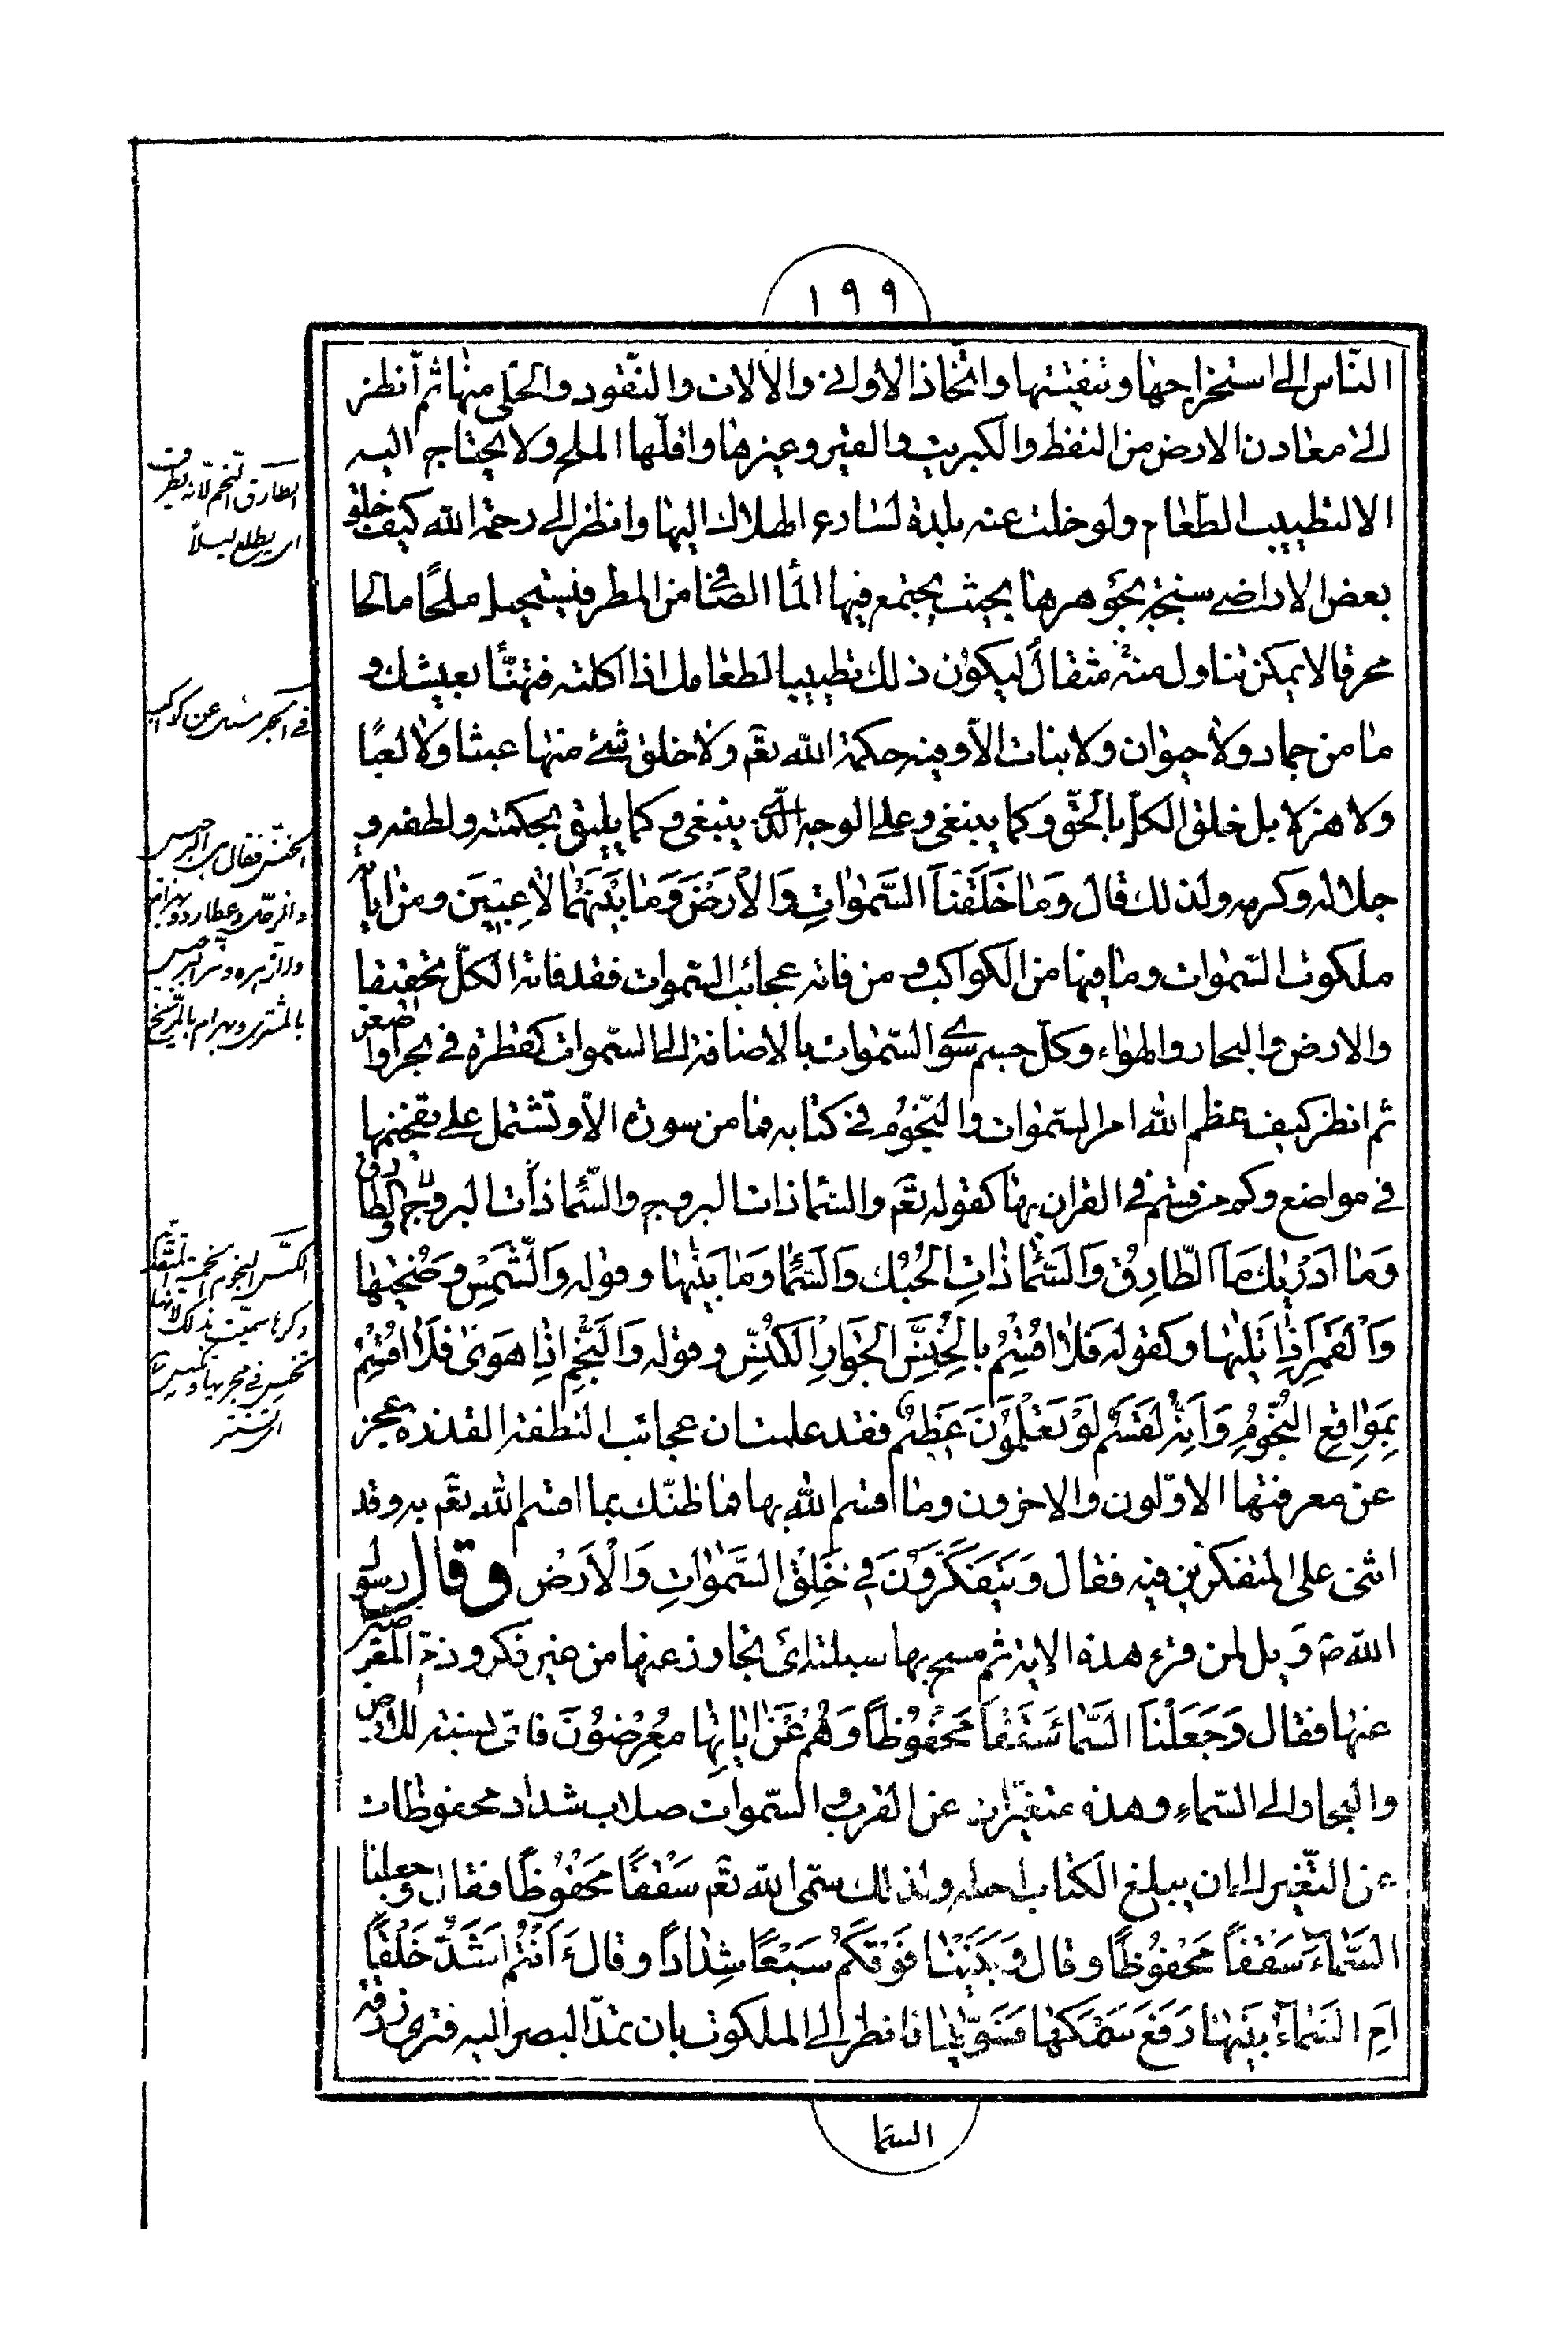 ١٩٩
النّاس الى استخراجها وتنقيتها واتّخاذ الاوانى والآلات والنّقود والحلّى منها ثم انظر
الى معادن الارض من النفط والكبريت والقير وغيرها واقلّها الملح ولا يحتاج اليه
الا لتطييب الطّعام ولو خلت عنه بلدة لتسارع الهلاك اليها وانظر الى رحمة الله كيف خلق
بعض الاراضى سبخة بجوهرها بحيث يجتمع فيها المأ الصّافى من المطر فيستحيل ملحًا مالحا
محرقا لا يمكن تناول منه مثقال ليكون ذلك تطييبا لطعامك اذا اكلته فتهنّأ بعيشك و
ما من جماد ولا حيوان ولا نبات الّا وفيه حكمة الله تعٓم ولا خلق شئ منها عبثا ولا لعبًا
ولا هزلا بل خلق الكلّ بالحقّ وكما ينبغى وعلى الوجه الّذى ينبغى وكما يليق بحكمته ولطفه و
جلاله وكرمه ولذلك قال وَمَا خَلَقْنَا السَّمٰوَاتِ وَالْاَرْضَ وَمَا بَيْنَهُمَا لاعِبينَ ومن اياته
ملكوت السّموات وما فيها من الكواكب و من فاته عجائب السّموات فقد فاته الكلّ تحقيقا
والارض والبحار والهواء وكلّ جسم سوى السّموات بالاضافة الى السّموات كقطرة فى بحر او اصغر
ثم انظر كيف عظم الله امر السّموات والنّجوم فى كتابه فما من سورة الّا وتشتمل على تفخيمها
فى مواضع وكم من قسم فى القران بها كقوله تعٓم والسّمأ ذات البروج والسّمأ ذات البروج والطّارق
وَمَا ادْرٰيكَ مَا الطّارِقُ وَالسَّمأ ذاتِ الْحُبُك وَالسَّمأ ومَا بَنٰيها وقوله وَالشَّمْسِ وَضُحٰيها
وَالْقَمَرِ اِذا تَلٰيها وكقوله فَلا اُقْسِمُ بِالْخُنَّسِ الْجَوارِ الْكُنَّسِ وقوله وَالنَّجْمِ اِذا هَوىٰ فَلا اُقْسِمُ
بِمَوَاقِعِ النُّجُومِ وَاِنَّهُ لَقَسَمٌ لَوْ تَعْلَمُونَ عَظيمٌ فقد علمت ان عجائب النطفة القذرة عجز
عن معرفتها الاوّلون والاخرون وما اقسم الله بها فما ظنّك بما اقسم الله تعٓم به وقد
اثنى على المتفكرين فيه فقال وَيَتَفَكَّرُونَ فى خَلْقِ السَّمٰوَاتِ وَالْاَرْضِ وقال رسول
الله صٓ وَيل لمن قرء هذه الاية ثم مسح بها سبلته اى تجاوز عنها من غير فكر وذمّ المعرضين
عنها فقال وَجَعَلْنَا السَّمأ سَقْفاً مَحْفُوظاً وَهُمْ عَنْ اياتِها مُعْرِضُونَ فاىّ نسبته للارض
والبحار الى السّماءِ وهذه متغيّرات عن القرب والسّموات صلاب شداد محفوظات
عن التّغير الى ان يبلغ الكتاب اجله ولذلك سمّى الله تعٓم سَقْفًا مَحْفُوظًا فقال وجعلنا
السَّماءَ سَقْفاً مَحْفُوظًا وقال وَبَنَيْنا فَوْقَكُمْ سَبْعًا شِداداً وقال ءَاَنْتُمْ اَشَدُّ خَلْقًا
اَمِ السَّماءُ بَنٰيها رَفَعَ سَمْكَها فَسَوّٰيها فانظر الى الملكوت بان تمدّ البصر اليه فترى زرقة
السّما
الطارق النجم لانه يطرق
اى يطلع ليلاً
الخنّس فقال
بالمشترى وبهرام بالمرّيخ